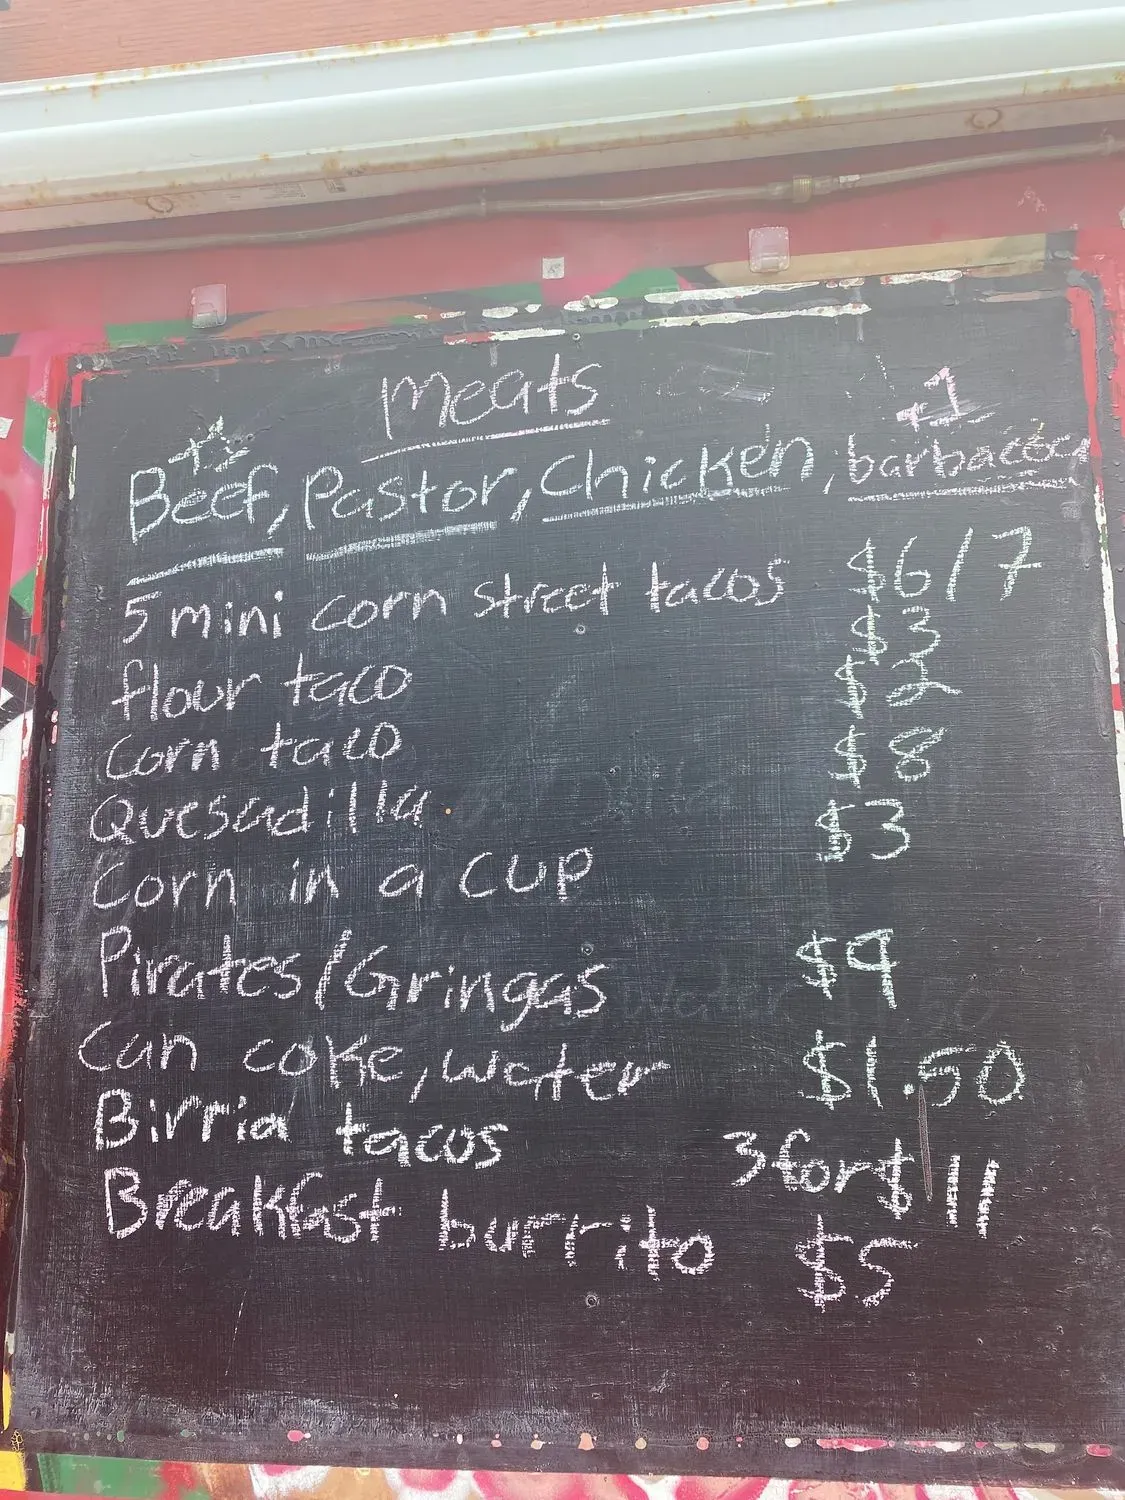 Meats
+1
Beef, Pastor, Chicken, barbacoa
5 mini corn street tacos $6/7
flour taco $3
Corn taco $2
Quesadilla $8
Corn in a cup $3
Pirates/Gringas $9
Can coke, water $1.50
Birria tacos 3 for $11
Breakfast burrito $5